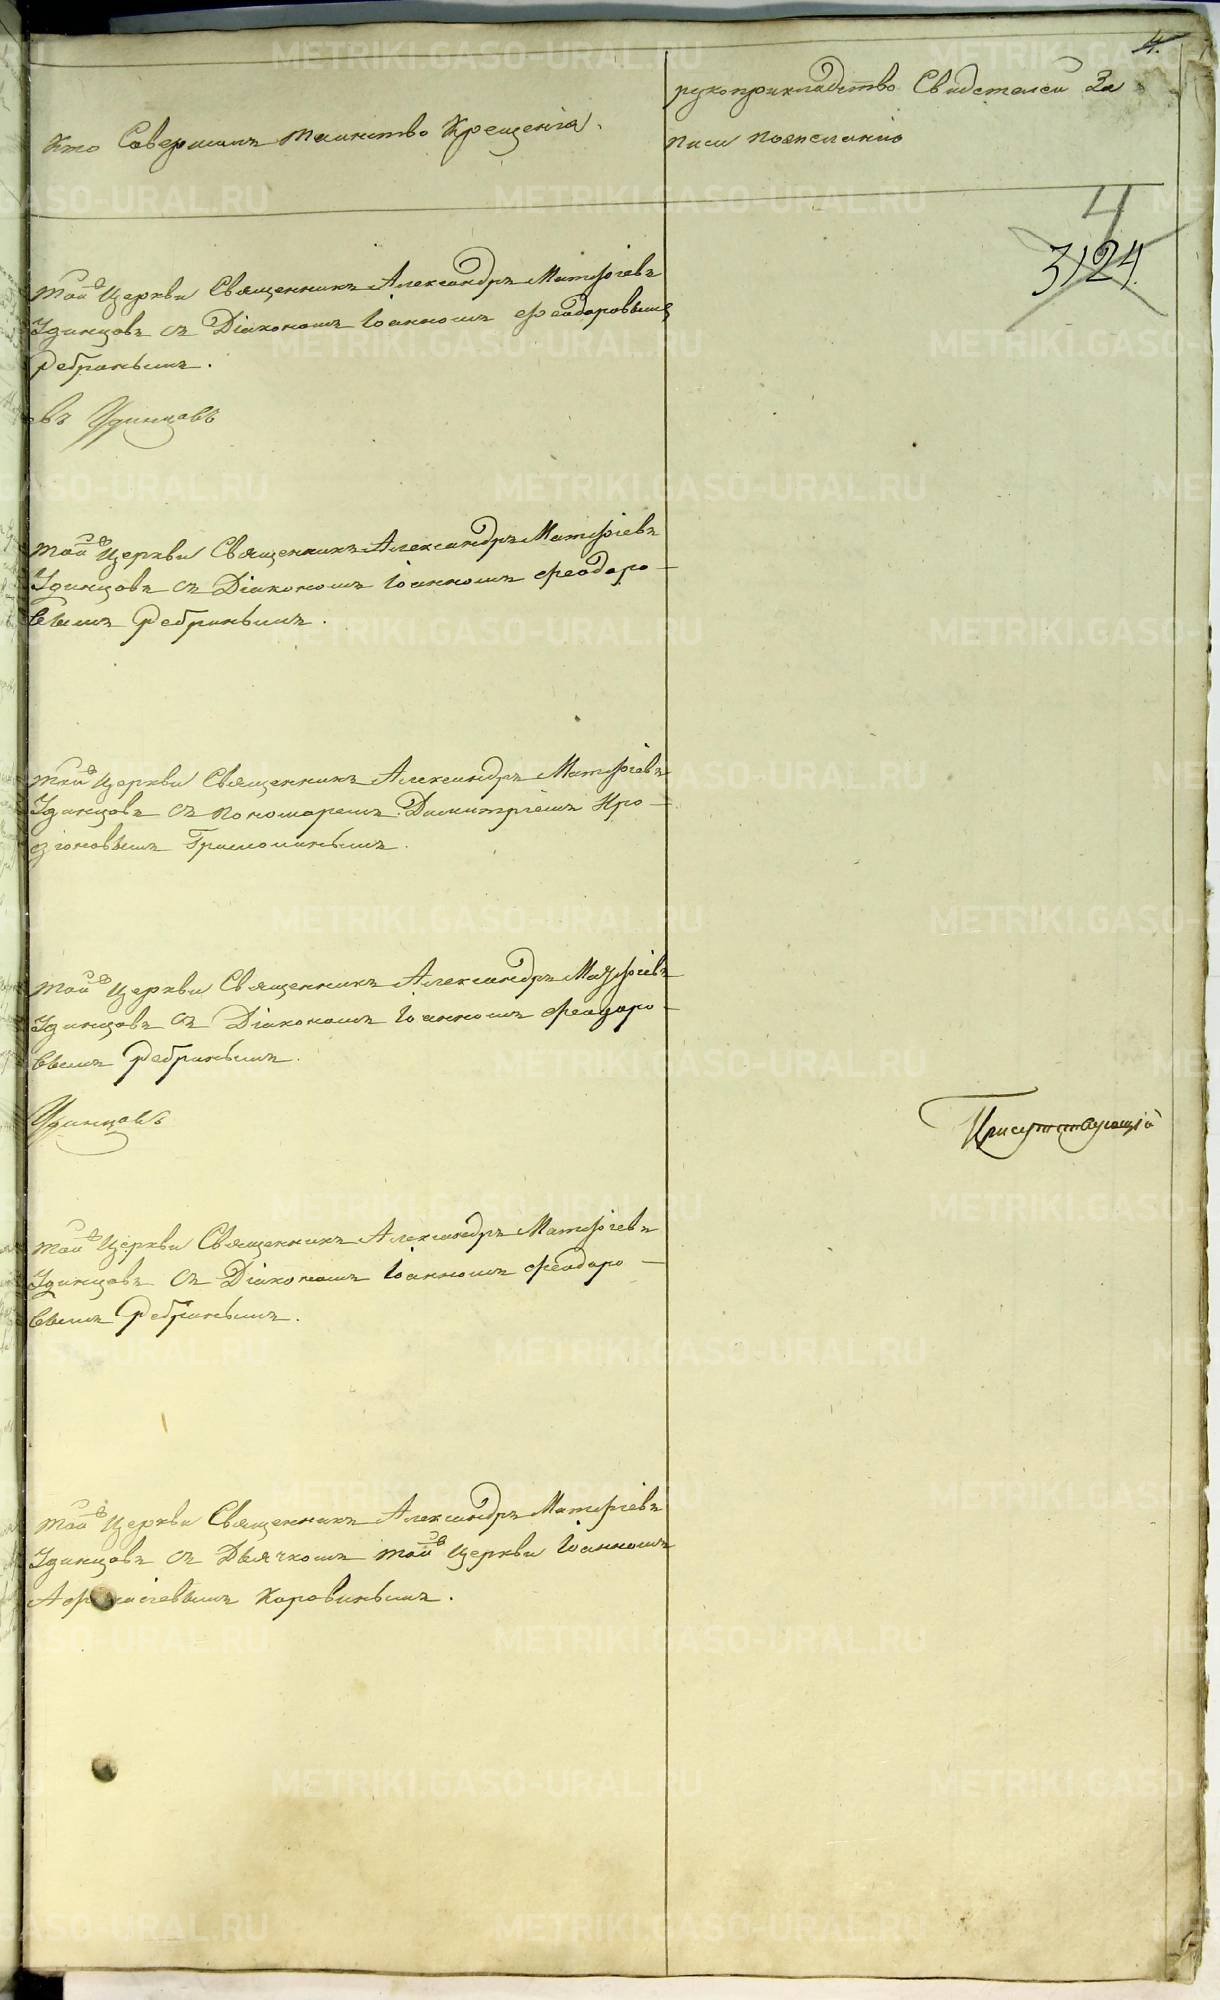 4.
Кто Совершалъ таинство Крещенія.
рукоприкладство Свидетелей За
писи пожеланію
4
3124.
той Церкви Священникъ Александръ Матфіевъ
Удинцовъ съ Діакономъ Іоанномъ Феодоровымъ
Ребринымъ.
въ Удинцовъ
той Церкви Священникъ Александръ Матфіевъ
Удинцовъ съ Діакономъ Іоанномъ Феодоро—
вымъ Ребринымъ.
той Церкви Священникъ Александръ Матфіевъ
Удинцовъ съ пономаремъ Димитріемъ
той Церкви Священникъ Александръ Матфіевъ
Удинцовъ съ Діакономъ Іоанномъ Феодоро—
вымъ Ребринымъ.
Удинцовъ
Присутствующій
той Церкви Священникъ Александръ Матфіевъ
Удинцовъ съ Діакономъ Іоанномъ Феодоро—
вымъ Ребринымъ.
той Церкви Священникъ Александръ Матфіевъ
Удинцовъ съ Дьячкомъ той Церкви Іоанномъ
Коровинымъ.
METRIKI.GASO-URAL.RU